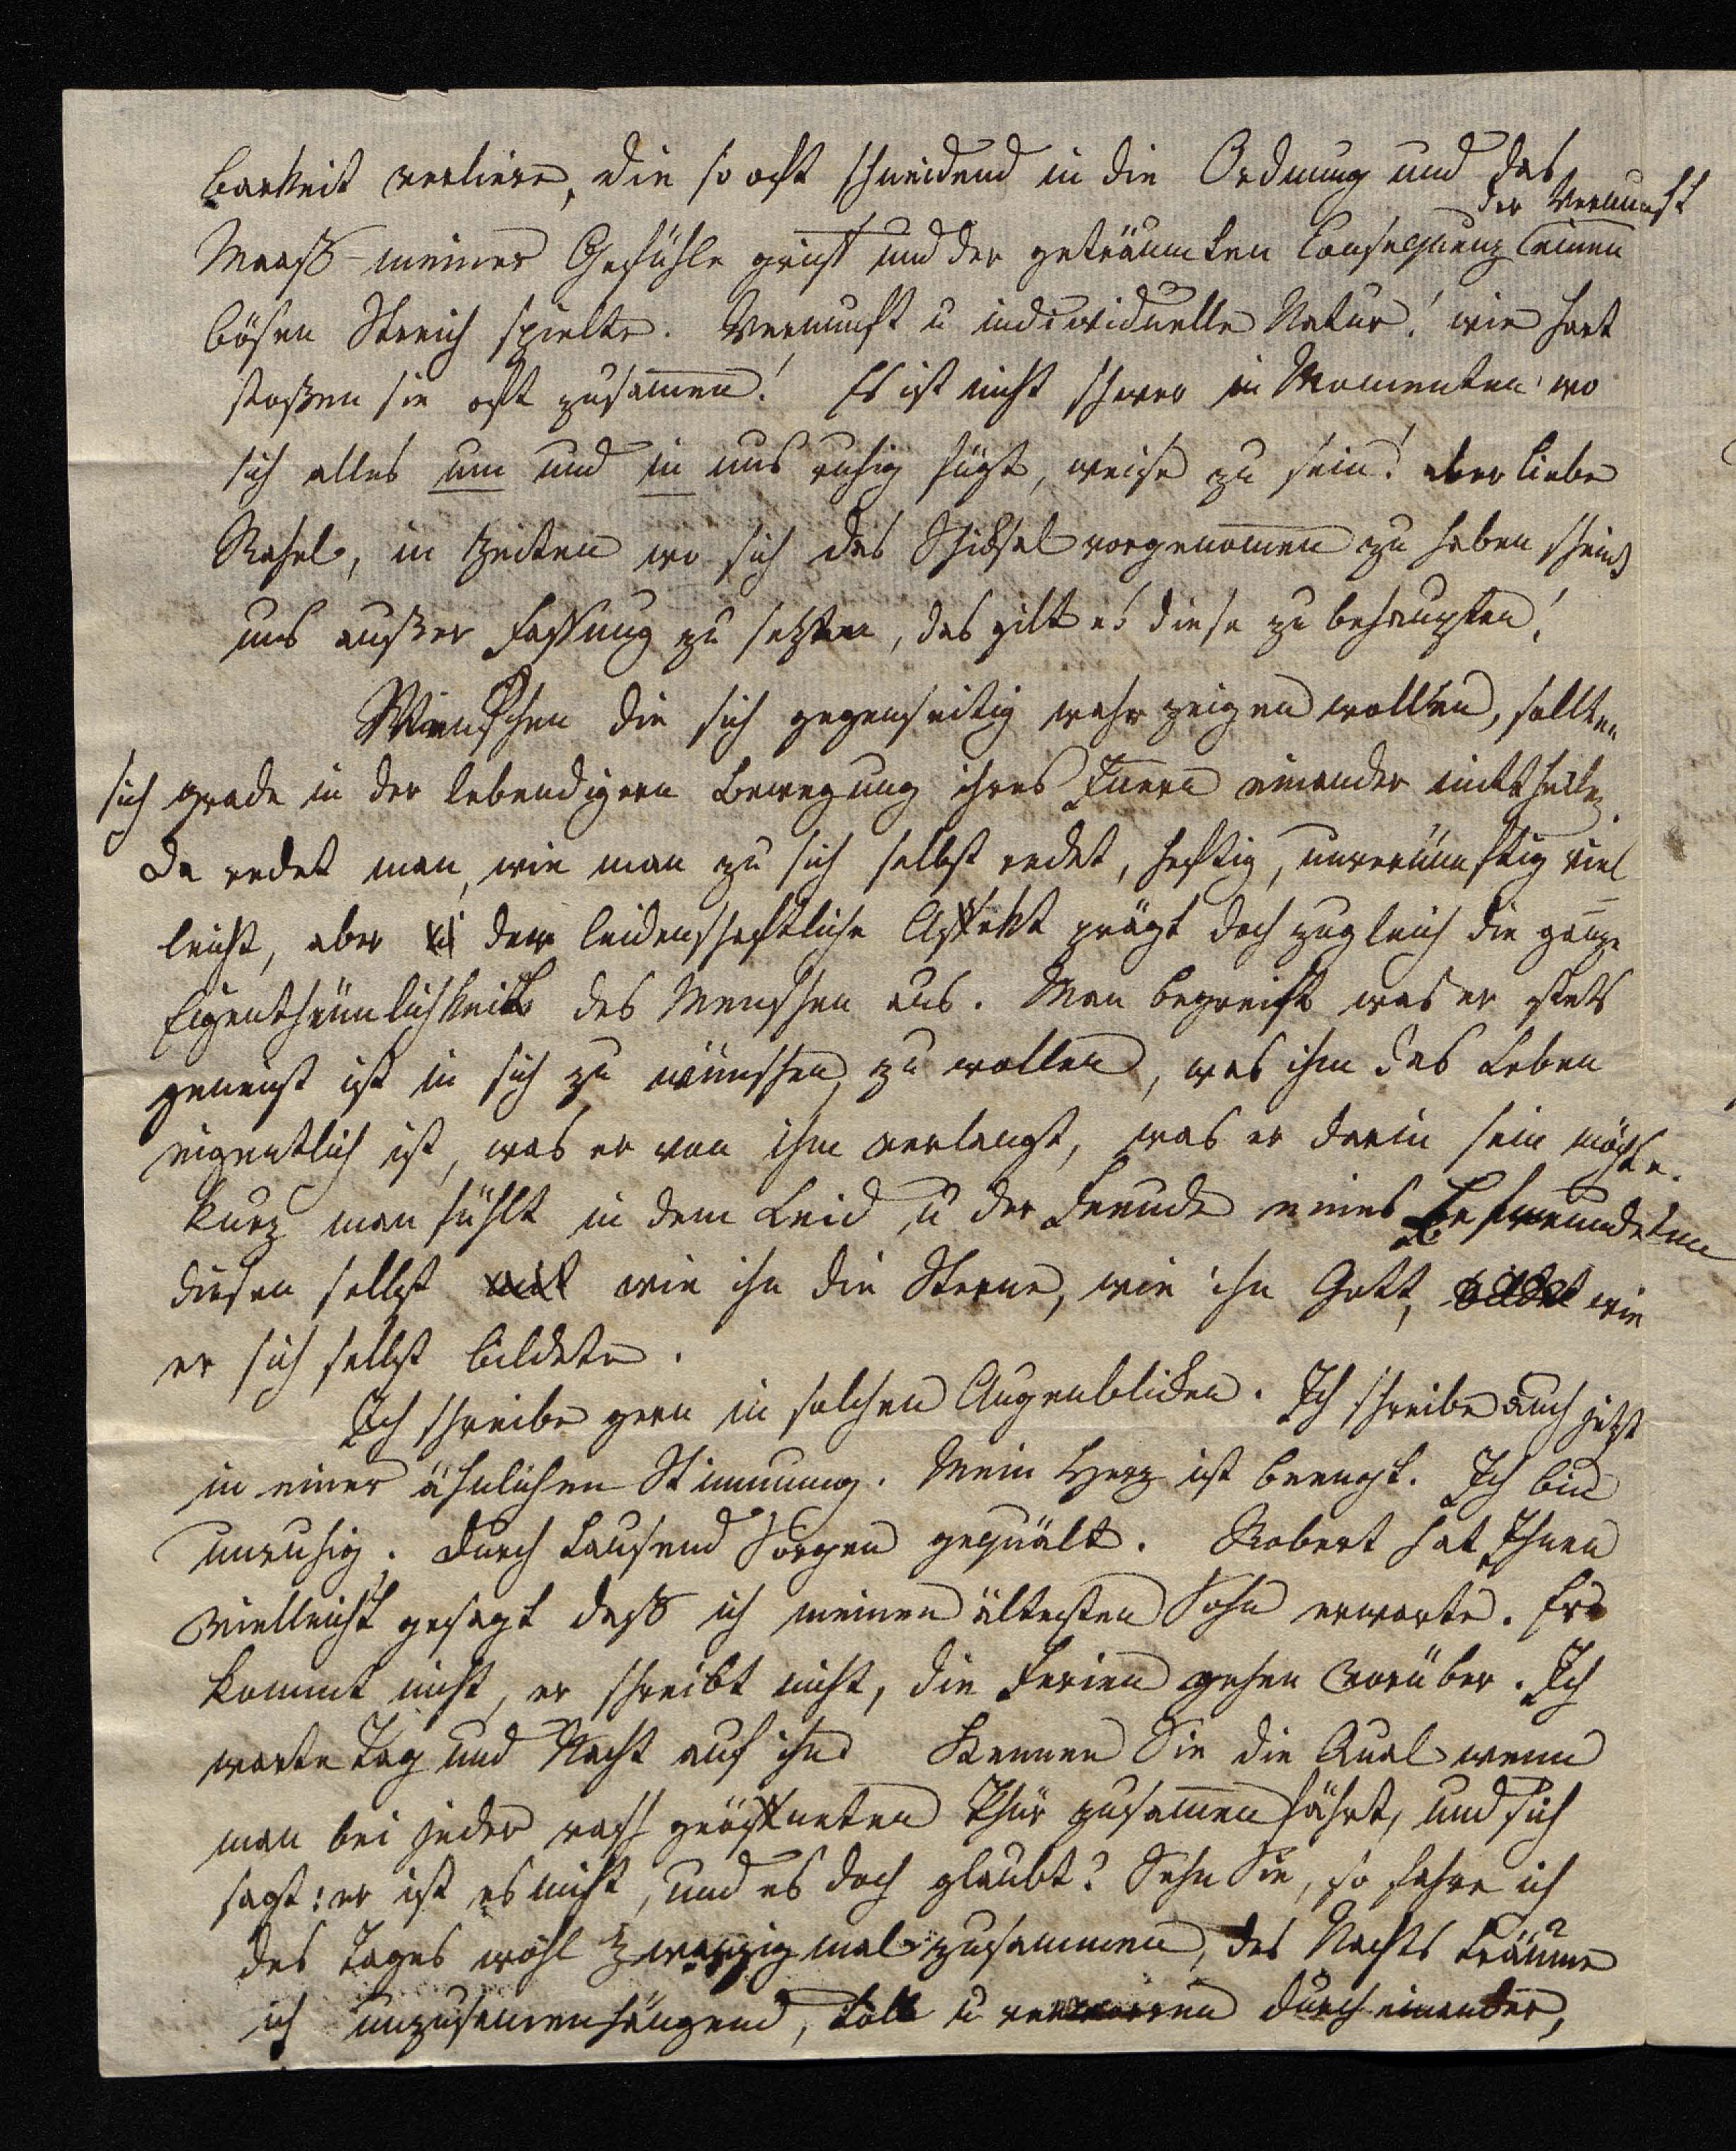 barkeit verliere, die so oft schneidend in die Ordnung und das
der Vernunft
Maaß meiner Gefühle greift und der geträumten Consequenz einen
bösen Streich spielte. Vernunft u individuelle Natur! wie hart
stoßen sie oft zusamen! Es ist nicht schwer in Momenten wo
sich alles um und in uns ruhig fügt, weise zu sein! aber liebe
Rahel, in Zeiten wo sich das Schicksal vorgenomen zu haben scheint
uns außer Fassung zu setzen, das gilt es diese zu behaupten!
Menschen die sich gegenseitig wahr zeigen wollen, sollten
sich grade in der lebendigern Bewegung ihres Innern einander mittheilen.
Da redet man, wie man zu sich selbst redet, heftig, unvernünftig viel
leicht, aber der leidenschaftliche Affekt prägt doch zugleich die ganze
Eigenthümlichkeit des Menschen aus. Man begreift was er stets
geneigt ist in sich zu wünschen, zu wollen, was ihm das Leben
eigentlich ist, was er von ihm verlangt, was er darin sein möchte.
kurz man fühlt in dem Leid u der Freude eines Befreundeten
diesen selbst wie ihn die Sterne, wie ihn Gott, wie
er sich selbst bildete.
Ich schreibe gern in solchen Augenblicken. Ich schreibe auch jetzt
in einer ähnlichen Stimmung. Mein Herz ist beengt. Ich bin
unruhig. durch tausend Sorgen gequält. Robert hat Ihnen
vielleicht gesagt daß ich meinen ältesten Sohn erwarte. Er
kommt nicht, er schreibt nicht, die Ferien gehen vorüber. Ich
warte Tag und Nacht auf ihn. Kennen Sie die Qual wenn
man bei jeder rasch geöffneten Thür zusamen fährt, und sich
sagt: er ist es nicht, und es doch glaubt? Sehn Sie, so fahre ich
des Tages wohl zwanzig mal zusammen, des Nachts träume
ich unzusamenhängend, toll u verworren durch einander,